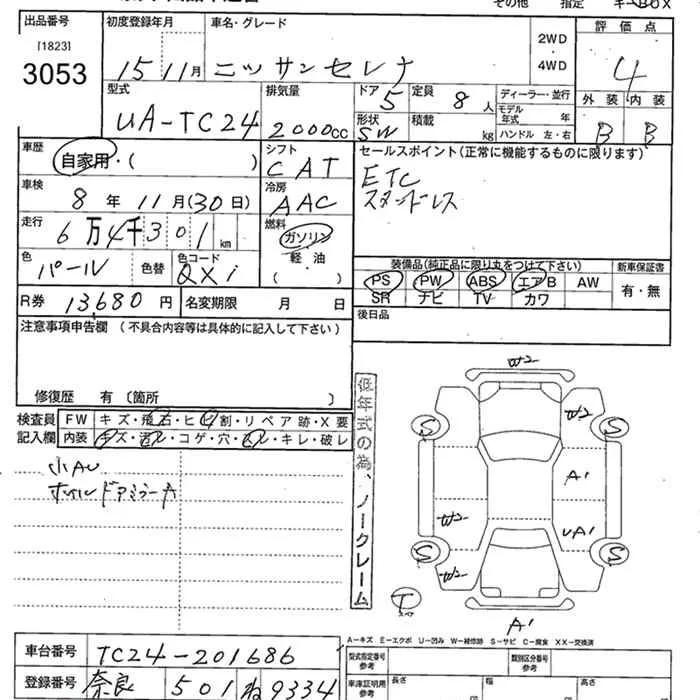 その他 指定 キーBOX
出品番号 初度登録年月 車名・グレード 評価点
[1823]
3053 15 11月 ニッサンセレナ 2WD ・ 4WD 4
型式 排気量 ドア 5 定員 8人 ディーラー・並行 外装 内装
UA-TC24 2000cc 形状 SW 積載 kg モデル年式 年 B B
ハンドル 左・右
車歴 自家用・( ) シフト CAT セールスポイント(正常に機能するものに限ります)
車検 8年 11月(30日) 冷房 AAC ETC
走行 6万4千301km 燃料 ガソリン
軽・油
( )
色 パール 色替 色コード QX1 装備品(純正品に限り丸をつけて下さい) 新車保証書
PS PW ABS エアB AW 有・無
R券 13680円 名変期限 月 日 SR ナビ TV カワ
注意事項申告欄 (不具合内容等は具体的に記入して下さい) 後日品
修復歴 有 〔箇所 〕
検査員 FW キズ・飛石・ヒビ割・リペア跡・X要
記入欄 内装 キズ・汚レ・コゲ・穴・スレ・キレ・破レ
小AU
低年式の為、ノークレーム
W2
W2
S S
A1
W2 UA1
S S
W2
T
A1
A-キズ E-エクボ U-凹み W-補修跡 S-サビ C-腐食 XX-交換済
車台番号 TC24-201686 型式指定番号 参考 類別区分番号 参考
登録番号 奈良 501 ね 9334 車庫証明用 参考 長さ 幅 高さ